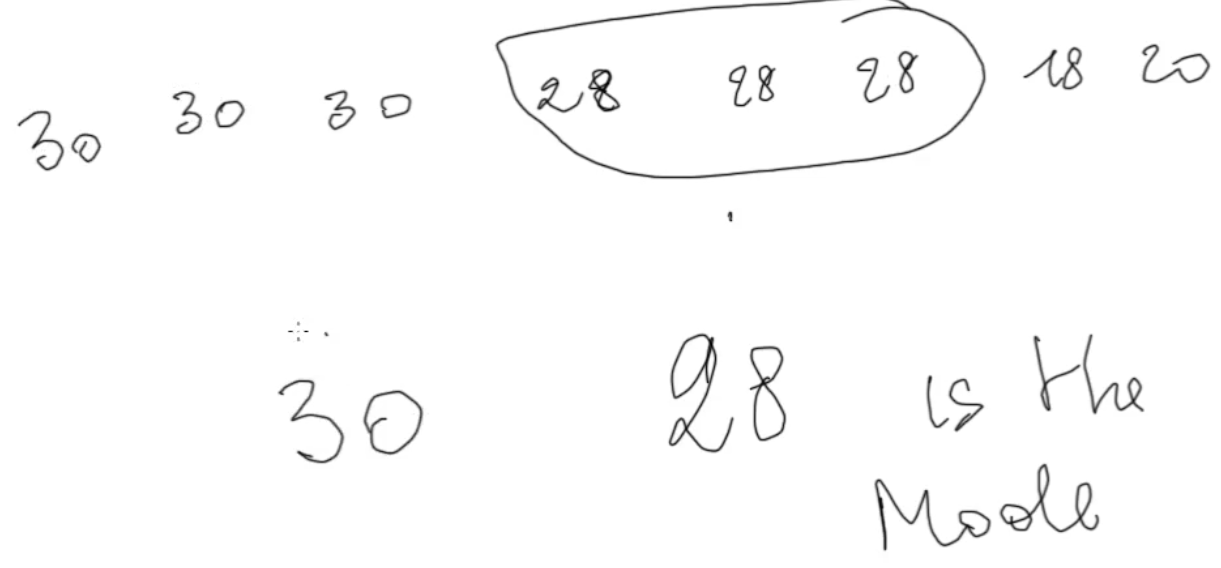 30 30 30 28 28 28 18 20
30 28 is the
Mode